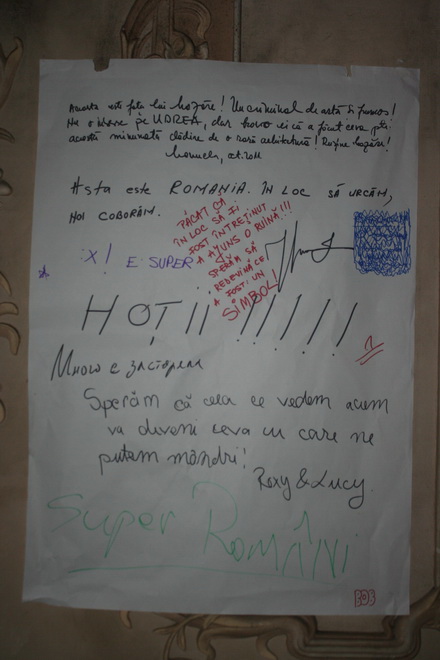 Aceasta este fata lui Mazăre! Un criminal de artă și frumos!
Nu o iubesc pe UDREA, dar bravo ei că a făcut ceva ptr.
această minunată clădire de o rară arhitectură! Rușine Mazăre!
Manuela, oct. 2011
Asta este ROMANIA. ÎN LOC SĂ URCĂM,
NOI COBORÂM.
PĂCAT CĂ
ÎN LOC SĂ FI
FOST ÎNTREȚINUT
A AJUNS O RUINĂ!!!
SPERĂM SĂ
REDEVINĂ CE
A FOST: UN
SIMBOL!
:X! E SUPER
HOȚII !!!!!!
Много е
Sperăm că ceea ce vedem acum
va deveni ceva cu care ne
putem mândri!
Roxy & Lucy.
Super ROMÂNI
BOB